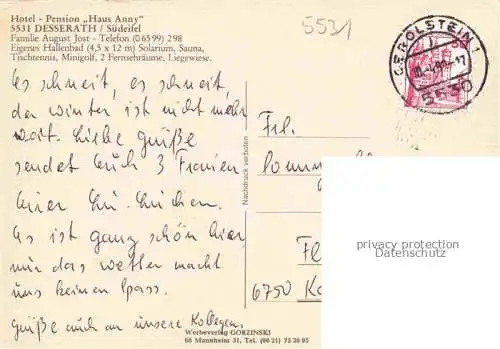 Hotel - Pension „Haus Anny"
5531 DESSERATH / Südeifel
Familie August Jost - Telefon (0 65 99) 2 98
Eigenes Hallenbad (4,5 x 12 m) Solarium, Sauna,
Tischtennis, Minigolf, 2 Fernsehräume, Liegewiese.
5531
GEROLSTEIN 1
5530
Es schneit, es schneit,
der Winter ist nicht mehr
weit. Liebe Grüße
sendet Euch 3 Frauen
Es ist ganz schön hier
nur das Wetter macht
uns keinen Spass.
Grüße auch an unsere Kollegen.
Nachdruck verboten
Frl.
6750
privacy protection
Datenschutz
Werbeverlag GORZINSKI
68 Mannheim 31, Tel. (06 21) 73 26 95